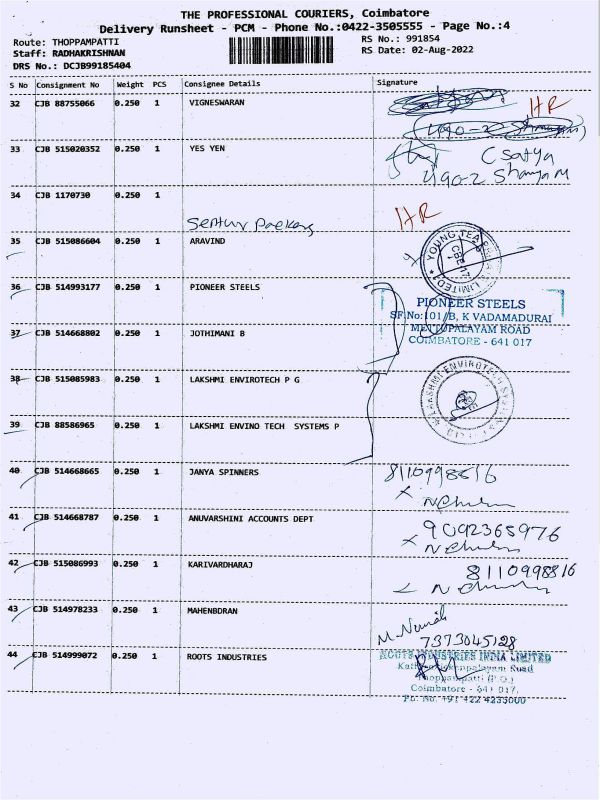 THE PROFESSIONAL COURIERS, Coimbatore
Delivery Runsheet - PCM - Phone No.:0422-3505555 - Page No.:4
Route: THOPPAMPATTI
Staff: RADHAKRISHNAN
DRS No.: DCJB99185404
RS No.: 991854
RS Date: 02-Aug-2022
S No Consignment No Weight PCS Consignee Details Signature
32 CJB 88755066 0.250 1 VIGNESWARAN
HR
33 CJB 515020352 0.250 1 YES YEN
C Satya
490-2 Shanya M
34 CJB 1170730 0.250 1
HR
35 CJB 515086604 0.250 1 ARAVIND
36 CJB 514993177 0.250 1 PIONEER STEELS
PIONEER STEELS
SF.No:101/B, K VADAMADURAI
METTUPALAYAM ROAD
COIMBATORE - 641 017
37 CJB 514668802 0.250 1 JOTHIMANI B
38 CJB 515085983 0.250 1 LAKSHMI ENVIROTECH P G
39 CJB 88586965 0.250 1 LAKSHMI ENVINO TECH SYSTEMS P
40 CJB 514668665 0.250 1 JANYA SPINNERS
8110998816
41 CJB 514668787 0.250 1 ANUVARSHINI ACCOUNTS DEPT
9092365976
42 CJB 515086993 0.250 1 KARIVARDHARAJ
8110998816
43 CJB 514978233 0.250 1 MAHENBDRAN
7373045128
44 CJB 514999072 0.250 1 ROOTS INDUSTRIES
ROOTS INDUSTRIES INDIA LIMITED
Thoppampatti (P.O.)
Coimbatore - 641 017.
Ph. No. +91 422 4233000